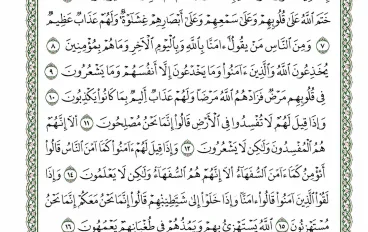 خَتَمَ ٱللَّهُ عَلَىٰ قُلُوبِهِمْ وَعَلَىٰ سَمْعِهِمْ وَعَلَىٰٓ أَبْصَٰرِهِمْ غِشَٰوَةٌ وَلَهُمْ عَذَابٌ عَظِيمٌ
٧ وَمِنَ ٱلنَّاسِ مَن يَقُولُ ءَامَنَّا بِٱللَّهِ وَبِٱلْيَوْمِ ٱلْءَاخِرِ وَمَا هُم بِمُؤْمِنِينَ ٨
يُخَٰدِعُونَ ٱللَّهَ وَٱلَّذِينَ ءَامَنُوا۟ وَمَا يَخْدَعُونَ إِلَّآ أَنفُسَهُمْ وَمَا يَشْعُرُونَ ٩
فِى قُلُوبِهِم مَّرَضٌ فَزَادَهُمُ ٱللَّهُ مَرَضًا وَلَهُمْ عَذَابٌ أَلِيمٌۢ بِمَا كَانُوا۟ يَكْذِبُونَ ١٠
وَإِذَا قِيلَ لَهُمْ لَا تُفْسِدُوا۟ فِى ٱلْأَرْضِ قَالُوٓا۟ إِنَّمَا نَحْنُ مُصْلِحُونَ ١١ أَلَآ إِنَّهُمْ
هُمُ ٱلْمُفْسِدُونَ وَلَٰكِن لَّا يَشْعُرُونَ ١٢ وَإِذَا قِيلَ لَهُمْ ءَامِنُوا۟ كَمَآ ءَامَنَ ٱلنَّاسُ قَالُوٓا۟
أَنُؤْمِنُ كَمَآ ءَامَنَ ٱلسُّفَهَآءُ أَلَآ إِنَّهُمْ هُمُ ٱلسُّفَهَآءُ وَلَٰكِن لَّا يَعْلَمُونَ ١٣ وَإِذَا
لَقُوا۟ ٱلَّذِينَ ءَامَنُوا۟ قَالُوٓا۟ ءَامَنَّا وَإِذَا خَلَوْا۟ إِلَىٰ شَيَٰطِينِهِمْ قَالُوٓا۟ إِنَّا مَعَكُمْ إِنَّمَا نَحْنُ
مُسْتَهْزِءُونَ ١٤ ٱللَّهُ يَسْتَهْزِئُ بِهِمْ وَيَمُدُّهُمْ فِى طُغْيَٰنِهِمْ يَعْمَهُونَ ١٥